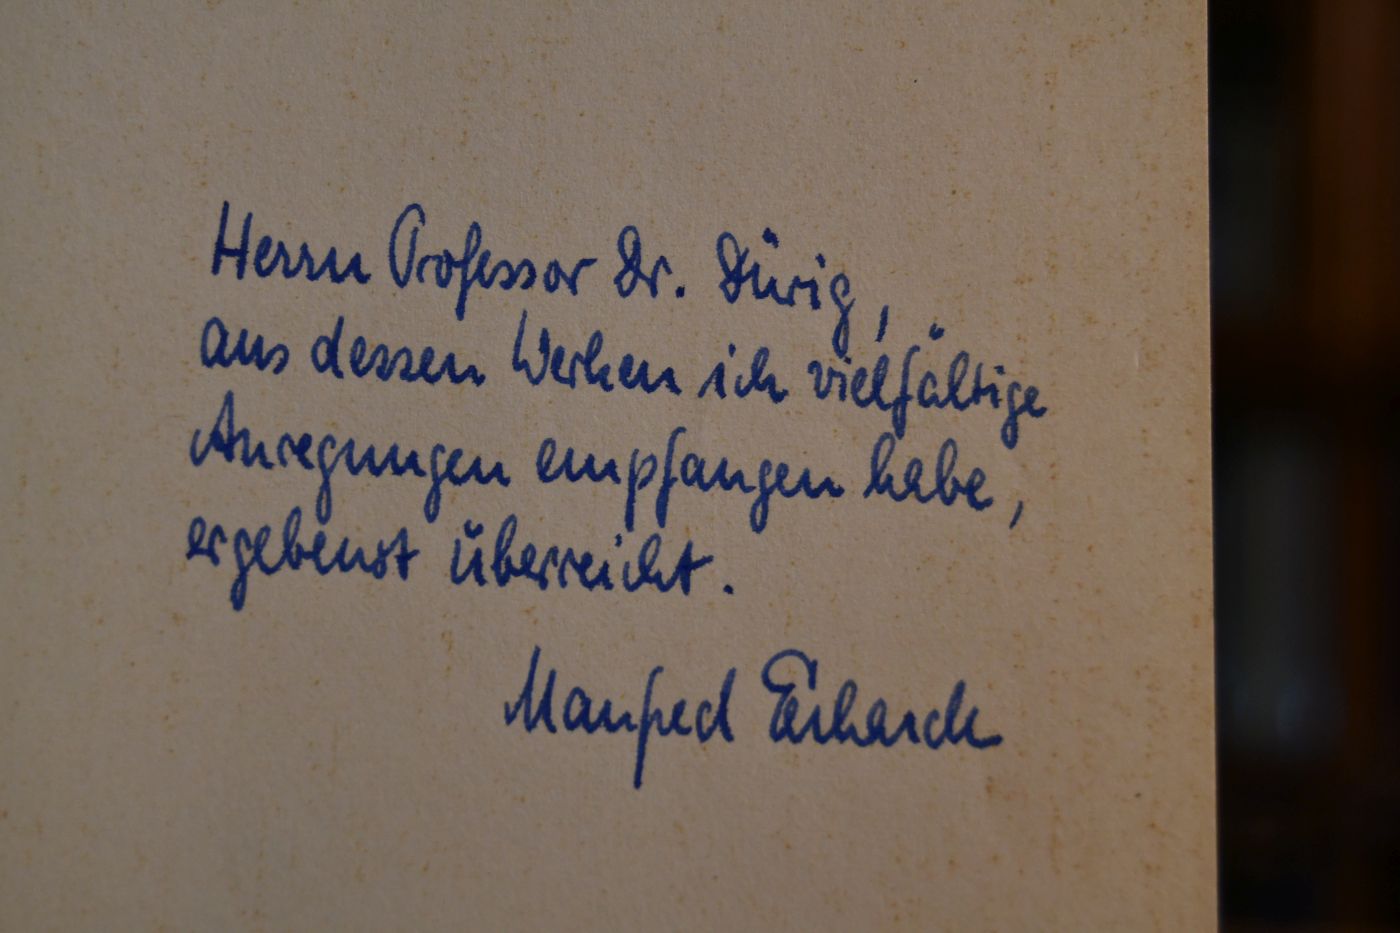 Herrn Professor Dr. Dürig,
aus dessen Werken ich vielfältige
Anregungen empfangen habe,
ergebenst überreicht.
Manfred